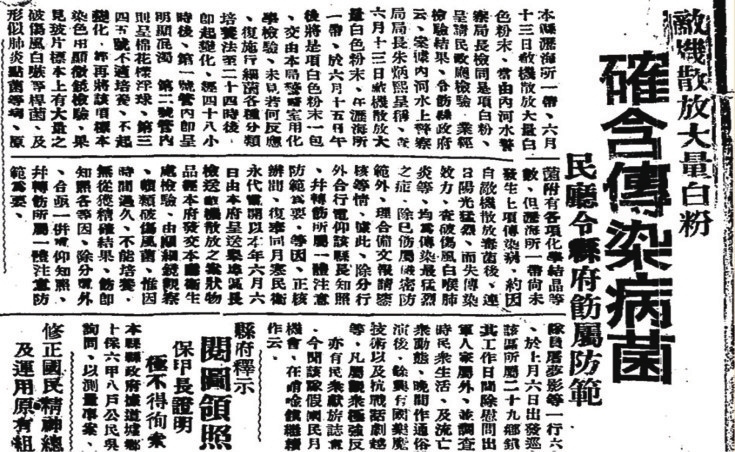 敵機散放大量白粉
確含傳染病菌
民廳令縣府飭屬防範
本縣瀝海所一帶、六月
十三日敵機散放大量白
色粉末、當由內河水警
察局長檢同是項白粉、
呈請民政廳檢驗、業經
檢驗結果、令飭縣政府
云、案據內河水上警察
局局長朱炳熙呈稱、查
六月十三日敵機散放大
量白色粉末、在瀝海所
一帶、於六月十五日午
後將是項白色粉末一包
、交由本局醫務室用化
學檢驗、未見若何反應
、復施行細菌各種分類
培養法至二十四時後、
即起變化、經四十八小
時後、第一號管內即呈
明顯混濁 第二號管內
則呈棉花樣浮球、第三
四五號不適培養、不起
變化、再將該項標本
染色用顯微鏡檢驗、果
見玻片標本上有大量之
破傷風白喉等桿菌、及
形似肺炎點菌等病、原
菌附有各項化學結晶等
數、但瀝海所一帶尚未
發生上項傳染病、約因
自敵機散放毒菌後、連
日陽光猛烈、而失傳染
效力、查破傷風白喉肺
炎等、均為傳染最猛烈
之症、除已飭屬嚴密防
範外、理合備文報請鑒
核等情、據此、除分行
外合行電仰該縣長知照
、幷轉飭所屬一體注意
防範為要、等因、正核
辦間、復奉同月寒民衛
永代電開以本年六月六
日由本府呈送埠區長
檢送敵機散放之狀物
品經本府發交本廳衛生
處檢驗、由顯微鏡觀察
、頗類破傷風菌、惟因
時間過久、不能培養、
無從獲精確結果、飭即
知照各等因、除分電外
、合亟一併電仰知照、
幷轉飭所屬一體注意防
範為要、
隊員屠夢影等一行六
、於上月六日出發巡
該區所屬二十九鄉鎮
其工作日間除慰問出
軍人家屬外、並調查
時民衆生活、及流亡
衆動態、晚間作通俗
演後、餘興有國樂魔
技術以及抗戰話劇越
等、凡屬觀衆極強反
、亦有民衆獻旗誌意
、今聞該隊假國民月
機會、在鎮繼續
作云、
縣府釋示
閱圖領照
保甲長證明
極不得徇索
本縣縣政府據道墟鄉
十保六甲八戶公民吳
詢問、以測量專案、
修正國民精神總
及運用原有組